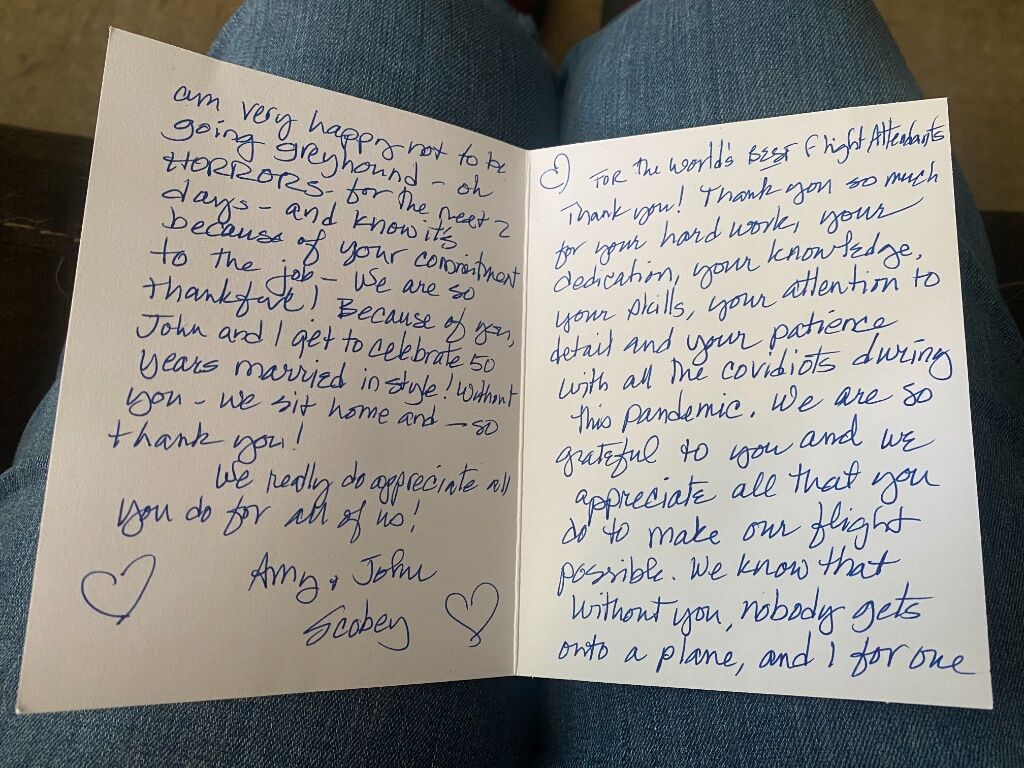 For the world's BEST Flight Attendants
Thank you! Thank you so much
for your hard work, your
dedication, your knowledge,
your skills, your attention to
detail and your patience
with all the covidiots during
this pandemic. We are so
grateful to you and we
appreciate all that you
do to make our flight
possible. We know that
without you, nobody gets
onto a plane, and I for one
am very happy not to be
going greyhound - oh
HORRORS - for the next 2
days - and know it's
because of your commitment
to the job - We are so
thankful! Because of you,
John and I get to celebrate 50
years married in style! Without
you - we sit home and - so
thank you!
We really do appreciate all
you do for all of us!
Amy & John
Scobey